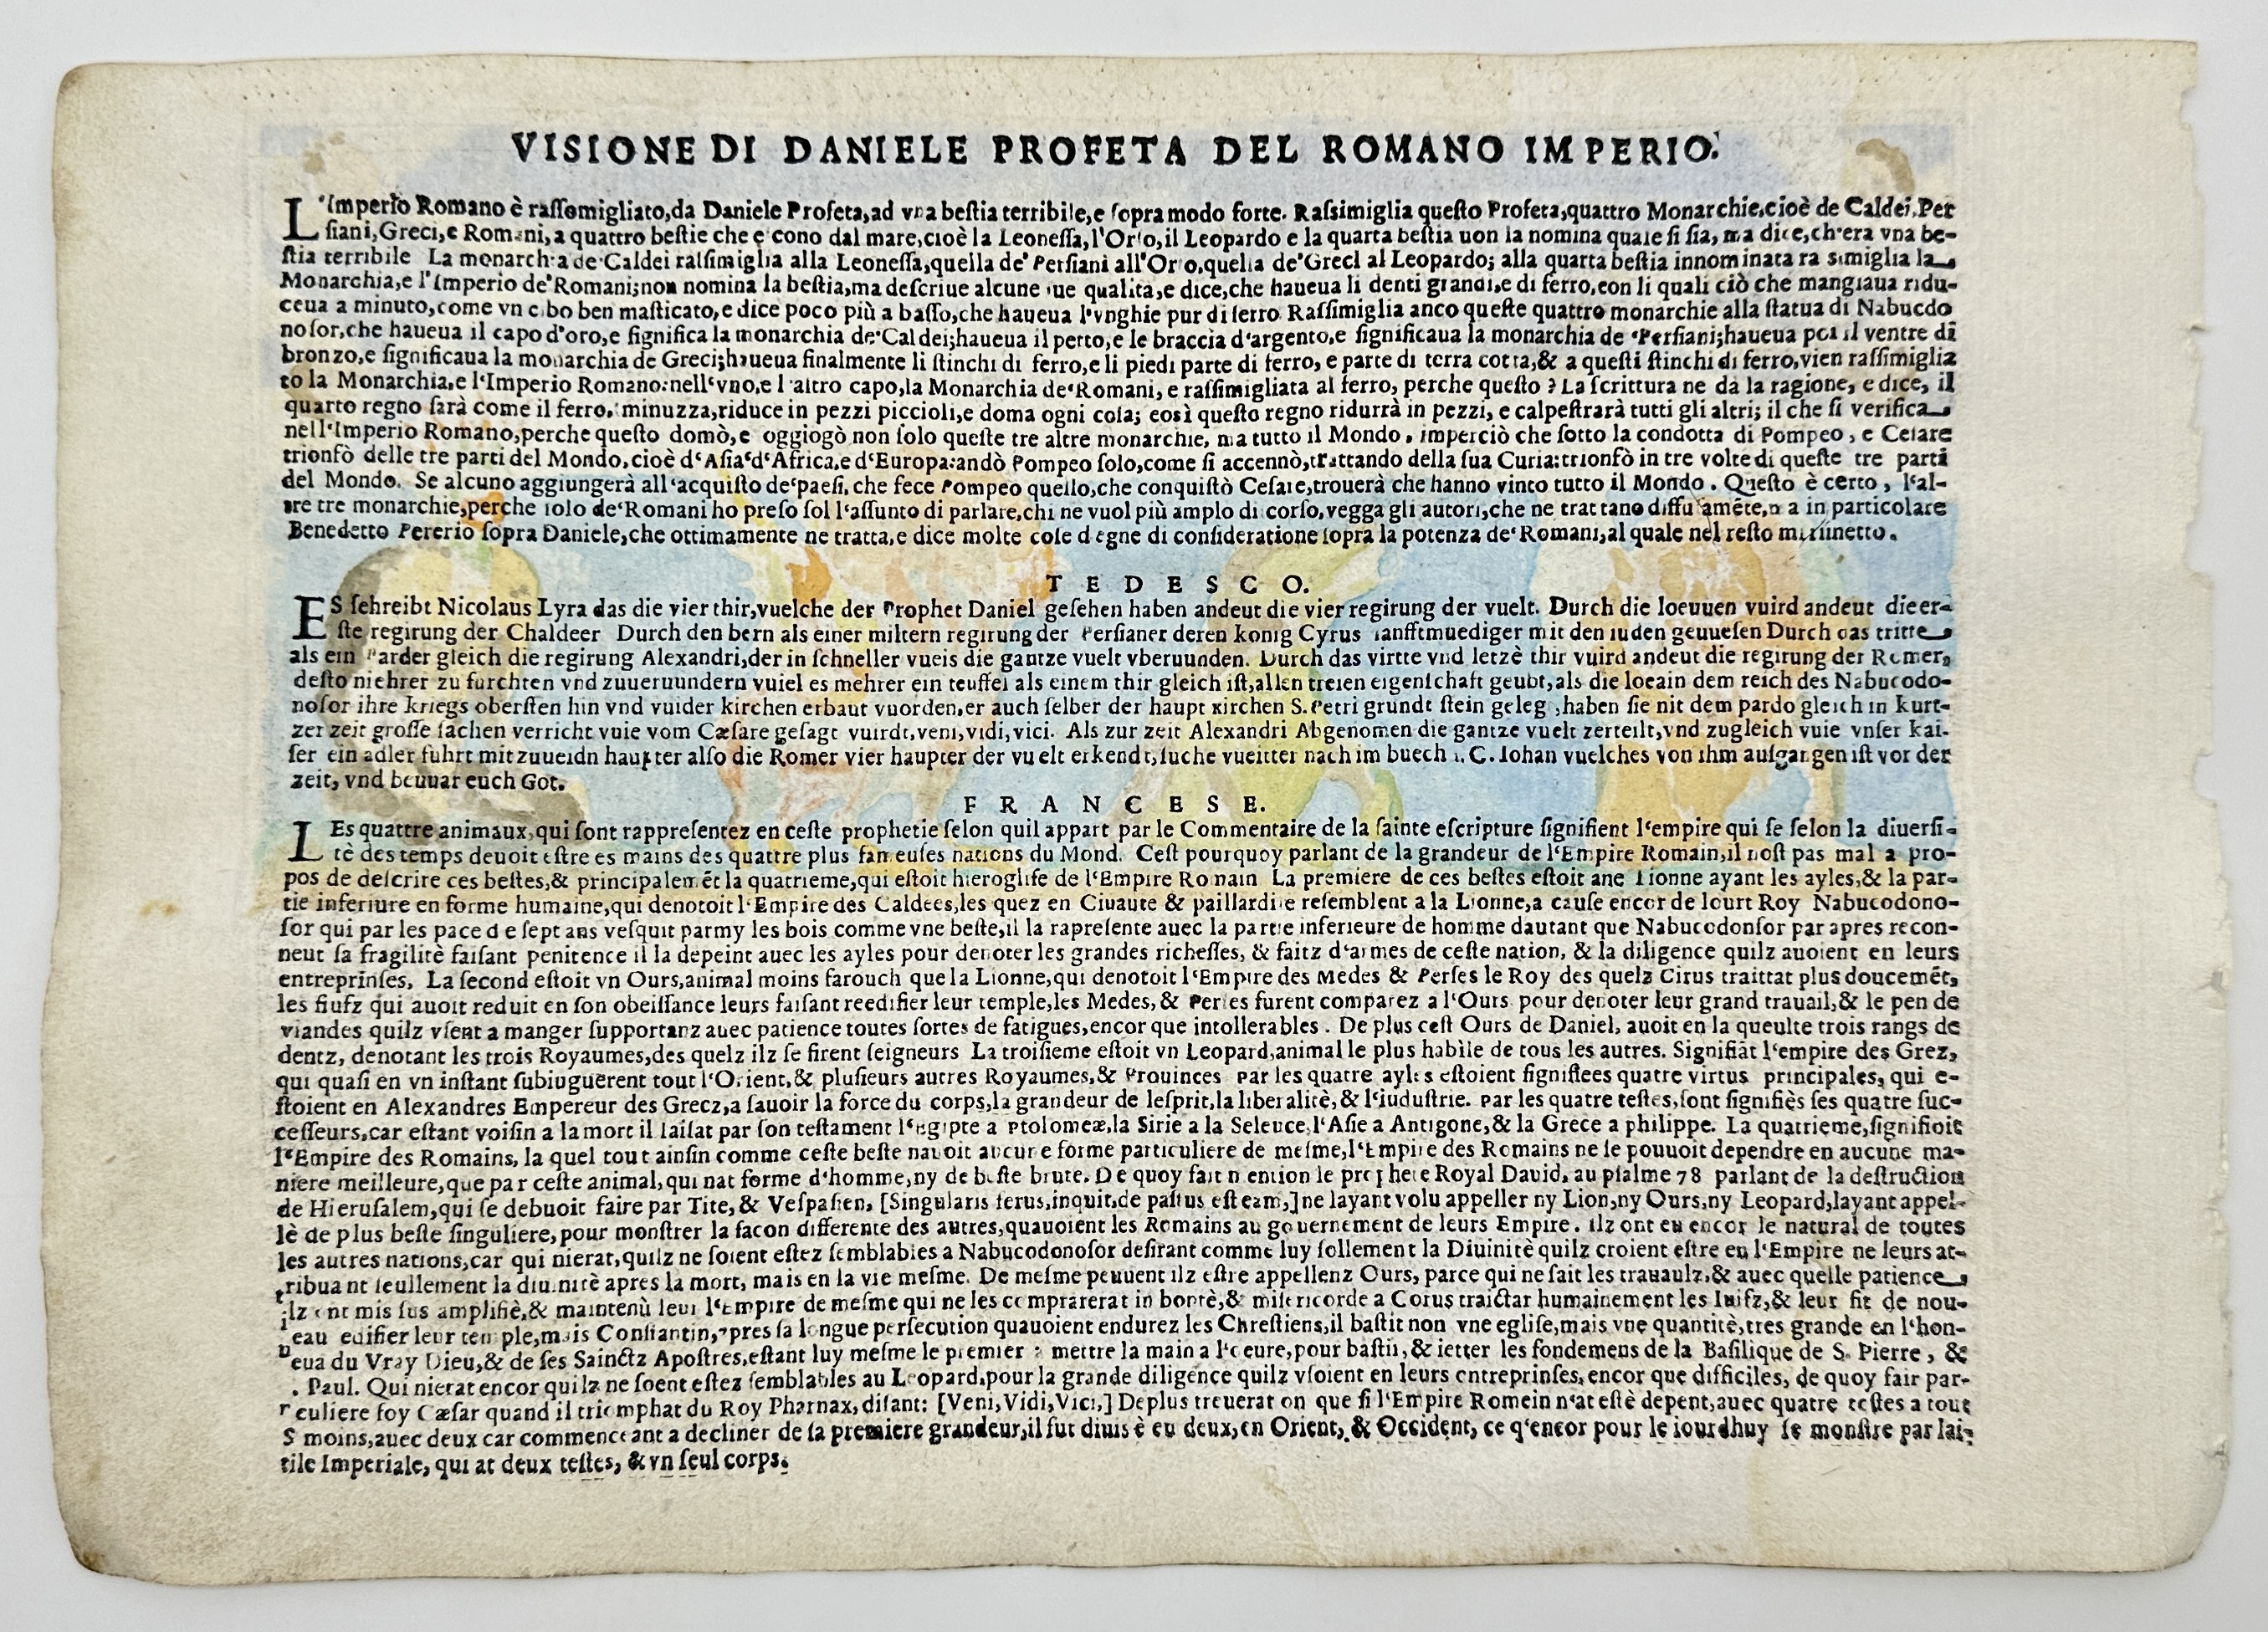 VISIONE DI DANIELE PROFETA DEL ROMANO IMPERIO.
L'Imperio Romano è raſſomigliato,da Daniele Profeta,ad vna beſtia terribile,e ſopra modo forte. Raſsimiglia queſto Profeta,quattro Monarchie,cioè de Caldei,Per
ſiani,Greci,e Romani,a quattro beſtie che cono dal mare,cioè la Leoneſſa,l'Orſo,il Leopardo e la quarta beſtia uon la nomina quale ſi ſia, ma dice,ch'era vna be-
ſtia terribile La monarchia de'Caldei raſſimiglia alla Leoneſſa,quella de'Perſiani all'Or o,quella de'Greci al Leopardo; alla quarta beſtia innominata ra simiglia la
Monarchia,e l'Imperio de'Romani;non nomina la beſtia,ma deſcriue alcune ue qualità,e dice,che haueua li denti grandi,e di ferro,con li quali ciò che mangiaua ridu-
ceua a minuto,come vn cibo ben maſticato,e dice poco più a baſſo,che haueua l'vnghie pur di ferro Raſſimiglia anco queſte quattro monarchie alla ſtatua di Nabucdo
noſor,che haueua il capo d'oro,e ſignifica la monarchia de'Caldei;haueua il perto,e le braccia d'argento,e ſignificaua la monarchia de 'Perſiani;haueua poi il ventre di
bronzo,e ſignificaua la monarchia de Greci;haueua finalmente li ſtinchi di ferro,e li piedi parte di ferro, e parte di terra cotta,& a queſti ſtinchi di ferro,vien raſſimiglia
to la Monarchia,e l'Imperio Romano:nell'vno,e l'altro capo,la Monarchia de'Romani, e raſſimigliata al ferro, perche queſto ? La ſcrittura ne dà la ragione, e dice, il
quarto regno ſarà come il ferro, minuzza,riduce in pezzi piccioli,e doma ogni coſa; eosì queſto regno ridurrà in pezzi, e calpeſtrarà tutti gli altri; il che ſi verifica
nell'Imperio Romano,perche queſto domò,e oggiogò non ſolo queſte tre altre monarchie, ma tutto il Mondo . imperciò che ſotto la condotta di Pompeo , e Ceſare
trionfò delle tre parti del Mondo,cioè d'Aſia'd'Africa,e d'Europa:andò Pompeo ſolo,come ſi accennò,trattando della ſua Curia:trionfò in tre volte di queſte tre parti
del Mondo. Se alcuno aggiungerà all'acquiſto de'paeſi, che fece Pompeo quello,che conquiſtò Ceſare,trouerà che hanno vinto tutto il Mondo . Queſto è certo , l'al-
tre tre monarchie,perche ſolo de'Romani ho preſo ſol l'aſſunto di parlare,chi ne vuol più amplo di corſo,vegga gli autori,che ne trattano diffuſamēte,m a in particolare
Benedetto Pererio ſopra Daniele,che ottimamente ne tratta,e dice molte coſe degne di conſideratione ſopra la potenza de'Romani,al quale nel reſto mi rimetto.
TEDESCO.
ES ſehreibt Nicolaus Lyra das die vier thir,vuelche der Prophet Daniel geſehen haben andeut die vier regirung der vuelt. Durch die loeuuen vuird andeut die er-
ſte regirung der Chaldeer Durch den bern als einer miltern regirung der Perſianer deren konig Cyrus ſanfftmuediger mit den iuden geuueſen Durch das tritte
als ein Parder gleich die regirung Alexandri,der in ſchneller vueis die gantze vuelt vberuunden. Durch das virtte vnd letzè thir vuird andeut die regirung der Romer,
deſto niehrer zu furchten vnd zuueruundern vuiel es mehrer ein teuffel als einem thir gleich iſt,allen treien eigenſchaft geubt,als die loeain dem reich des Nabucodo-
noſor ihre kriegs oberſten hin vnd vuider kirchen erbaut vuorden,er auch ſelber der haupt kirchen S.Petri grundt ſtein geleg ,haben ſie nit dem pardo gleich in kurt-
zer zeit groſſe ſachen verricht vuie vom Cæſare geſagt vuirdt,veni,vidi,vici. Als zur zeit Alexandri Abgenomen die gantze vuelt zerteilt,vnd zugleich vuie vnſer kai-
ſer ein adler fuhrt mit zuueidn haupter alſo die Romer vier haupter der vuelt erkendt,ſuche vueitter nach im buech i. C. Iohan vuelches von ihm auſgangen iſt vor der
zeit, vnd beuuar euch Got.
FRANCESE.
LEs quattre animaux,qui ſont rappreſentez en ceſte prophetie ſelon quil appart par le Commentaire de la ſainte eſcripture ſignifient l'empire qui ſe ſelon la diuerſi-
tè des temps deuoit eſtre es mains des quattre plus fameuſes nations du Mond. Ceſt pourquoy parlant de la grandeur de l'Empire Romain,il noſt pas mal a pro-
pos de deſcrire ces beſtes,& principalemēt la quatrieme,qui eſtoit hieroglife de l'Empire Romain La premiere de ces beſtes eſtoit ane Lionne ayant les ayles,& la par-
tie inferiure en forme humaine,qui denotoit l'Empire des Caldees,les quez en Ciuaute & paillardiſe reſemblent a la Lionne,a cauſe encor de leurt Roy Nabucodono-
ſor qui par les pace de ſept ans veſquit parmy les bois comme vne beſte,il la rapreſente auec la partie inferieure de homme dautant que Nabucodonſor par apres recon-
neut ſa fragilitè faiſant penitence il la depeint auec les ayles pour denoter les grandes richeſſes, & faitz d'armes de ceſte nation, & la diligence quilz auoient en leurs
entreprinſes, La ſecond eſtoit vn Ours,animal moins farouch que la Lionne,qui denotoit l'Empire des Medes & Perſes le Roy des quelz Cirus traittat plus doucemēt,
les fiufz qui auoit reduit en ſon obeiſſance leurs faiſant reedifier leur temple,les Medes,& Perſes furent comparez a l'Ours pour denoter leur grand trauail,& le pen de
viandes quilz vſent a manger ſupportanz auec patience toutes ſortes de fatigues,encor que intollerables . De plus ceſt Ours de Daniel, auoit en la queulte trois rangs de
dentz, denotant les trois Royaumes,des quelz ilz ſe firent ſeigneurs La troiſieme eſtoit vn Leopard,animal le plus habile de tous les autres. Signifiāt l'empire des Grez,
qui quaſi en vn inſtant ſubiuguerent tout l'Orient,& pluſieurs autres Royaumes,& Prouinces par les quatre ayles eſtoient ſigniſiees quatre virtus principales, qui e-
ſtoient en Alexandres Empereur des Grecz,a ſauoir la force du corps,la grandeur de leſprit,la liberalitè,& l'iuduſtrie. par les quatre teſtes,ſont ſignifiès ſes quatre ſuc-
ceſſeurs,car eſtant voiſin a la mort il laiſat par ſon teſtament l'egipte a ptolomeæ,la Sirie a la Seleuce,l'Aſie a Antigone,& la Grece a philippe. La quatrieme,ſignifioit
l'Empire des Romains, la quel tout ainſin comme ceſte beſte nauoit aucune forme particuliere de meſme,l'Empire des Romains ne ſe pouuoit dependre en aucune ma-
niere meilleure,que par ceſte animal,qui nat forme d'homme,ny de beſte brute. De quoy fait mention le prophete Royal David, au pſalme 78 parlant de la deſtruction
de Hieruſalem,qui ſe debuoit faire par Tite,& Veſpaſien, [Singularis ferus,inquit,de paſtus eſt eam,] ne layant volu appeller ny Lion,ny Ours,ny Leopard,layant appel-
lè de plus beſte ſinguliere,pour monſtrer la facon differente des autres,quauoient les Romains au gouernement de leurs Empire. ilz ont eu encor le natural de toutes
les autres nations,car qui nierat,quilz ne ſoient eſtez ſemblables a Nabucodonoſor deſirant comme luy follement la Diuinitè quilz croient eſtre en l'Empire ne leurs at-
tribuant ſeullement la diuinitè apres la mort, mais en la vie meſme. De meſme peuuent ilz eſtre appellenz Ours, parce qui ne ſait les trauaulz,& auec quelle patience
ilz ont mis ſus amplifiè,& maintenù leur l'Empire de meſme qui ne les comprarerat in bontè,& miſericorde a Corus traictar humainement les Iuifz,& leur fit de nou-
ueau edifier leur temple,mais Conſtantin,apres ſa longue perſecution quauoient endurez les Chreſtiens,il baſtit non vne egliſe,mais vne quantitè,tres grande en l'hon-
eua du Vray Dieu,& de ſes Sainctz Apoſtres,eſtant luy meſme le premier a mettre la main a l'oeure,pour baſtii,& ietter les fondemens de la Baſilique de S. Pierre , &
. Paul. Qui nierat encor quilz ne ſoent eſtez ſemblables au Leopard,pour la grande diligence quilz vſoient en leurs entreprinſes,encor que difficiles, de quoy fair par-
r culiere foy Cæſar quand il triomphat du Roy Pharnax,diſant: [Veni,Vidi,Vici,] De plus treuerat on que ſi l'Empire Romein n'at eſtè depent,auec quatre teſtes a tout
S moins,auec deux car commenceant a decliner de ſa premiere grandeur,il fut diuisè eu deux,en Orient,& Occident, ce q'encor pour le iourdhuy ſe monſtre par lai-
tile Imperiale, qui at deux teſtes, & vn ſeul corps.